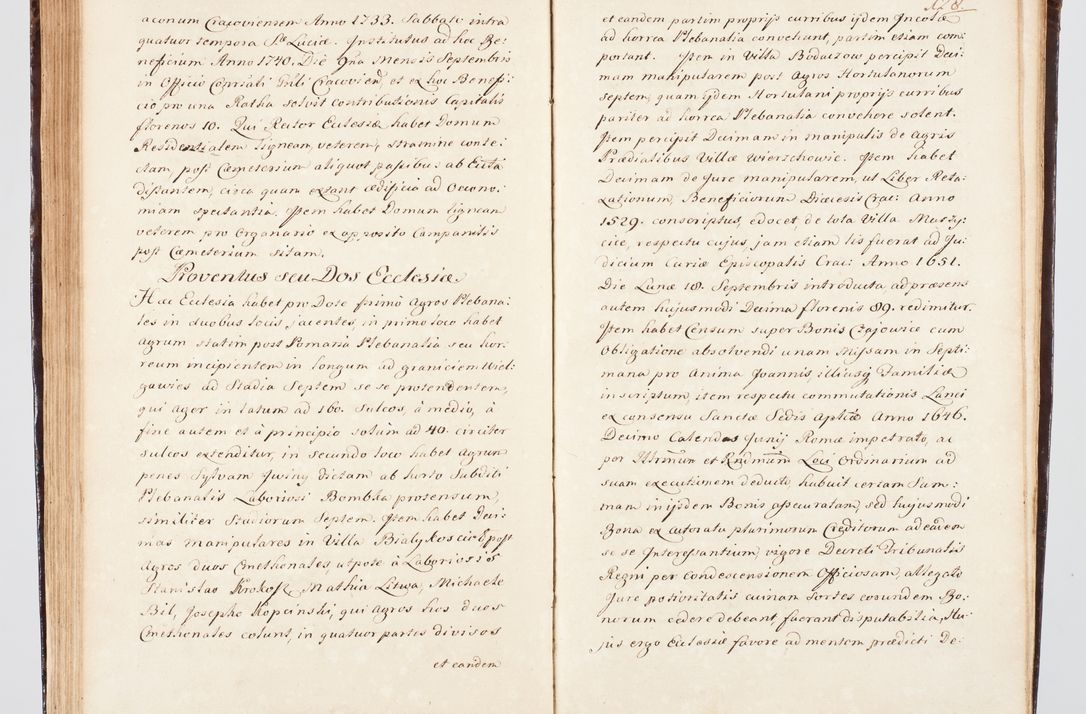 aconum Cracoviensem Anno 1733. Sabbato intra
quatuor tempora Stæ Luciæ. Institutus ad hoc Be:
neficium Anno 1740. Die 9na Mensis Septembris
in Officio Consriali Gnli Cracovien, et ex hoc Benefi:
cio pro una Ratha solvit contributionis Capitalis
florenos 10. Qui Rector Eclesiæ habet Domum
Residentialem ligneam, veterem, stramine conte:
ctam, post Cæmeterium aliquot passibus ab Ecctia
distantem, circa quam extant ædificia ad Oecono:
miam spectantia. Item habet Domum ligneam
veterem pro Organario ex opposito Campanilis
post Cæmeterium sitam.
Proventus seu Dos Ecclesiæ
Hæc Ecclesia habet pro Dote primò Agros Plebana:
les in duobus locis, jacentes, in primo loco habet
agrum statim post Pomaria Plebanalia seu hor:
reum incipientem in longum ad graniciem Wiel:
gawies ad Stadia Septem se se protendentem,
qui ager in latum ad 160. sulcos, à medio, à
fine autem et à principio solùm ad 40. circiter
sulcos extenditur, in secundo loco habet Agrum
penes Sylvam Gwiny dictam ab horto Subditi
Plebanalis Laboriosi Bombka protensum,
similiter Stadiorum Septem. Item habet Deci:
mas manipulares in Villa Białykoscioł post
Agros duos Cmethonales, utpote à Laboriosis
Stanislao Krokosz, Mathia Litwa, Michaele
Bil, Josepho Kopcinski, qui agros hos duos
Cmethonales colunt, in quatuor partes divisos
et eandem
et eandem partim proprijs curribus ijdem Incolæ
ad horrea Plebanalia convehunt, partim etiam com:
portant. Item in Villa Bodaczow percipit Deci:
mam manipularem post Agros Hortulanorum
septem, quam ijdem Hortulani proprijs curribus
pariter ad horrea Plebanalia convehere solent.
Item percipit Decimam in manipulis de agris
Prædialibus Villæ Wierzchowie. Item habet
Decimam de Jure manipularem, ut Liber Reta:
xationum Beneficiorum Diæcesis Crac: Anno
1529. conscriptus, edocet, de tota Villa Maszy:
cice, respectu cujus, jam etiam lis fuerat ad Ju:
dicium Curiæ Episcopalis Crac: Anno 1651.
Die Lunæ 18. Septembris introducta, ad præsens
autem hujusmodi Decima florenis 89. redimitur.
Item habet Censum super Bonis Czajowice cum
Obligatione absolvendi unam Missam in Septi:
mana pro Anima Joannis, illiusq Familiæ
inscriptum, item respectu commutationis Lanei
ex consensu Sanctæ Sedis Aplicæ Anno 1646.
Decimo Calendas Junij Romæ impetrato, ac
per Illrmum et Rndmum Loci Ordinarium ad
suam executionem deducto, habuit certam Sum:
mam in ijsdem Bonis assecuratam, sed hujusmodi
Bona ex autoratu plurimorum Creditorum ad eadem
se se Interessantium, vigore Decreti Tribunalis
Regni per Condescensionem Officiosam, allegato
Jure potioritatis cuinam Sortes eorundem Bo:
norum cedere debeant, fuerant disputabilia, Hu:
jus ergo Ecclesiæ favore ad mentem prædicti De: